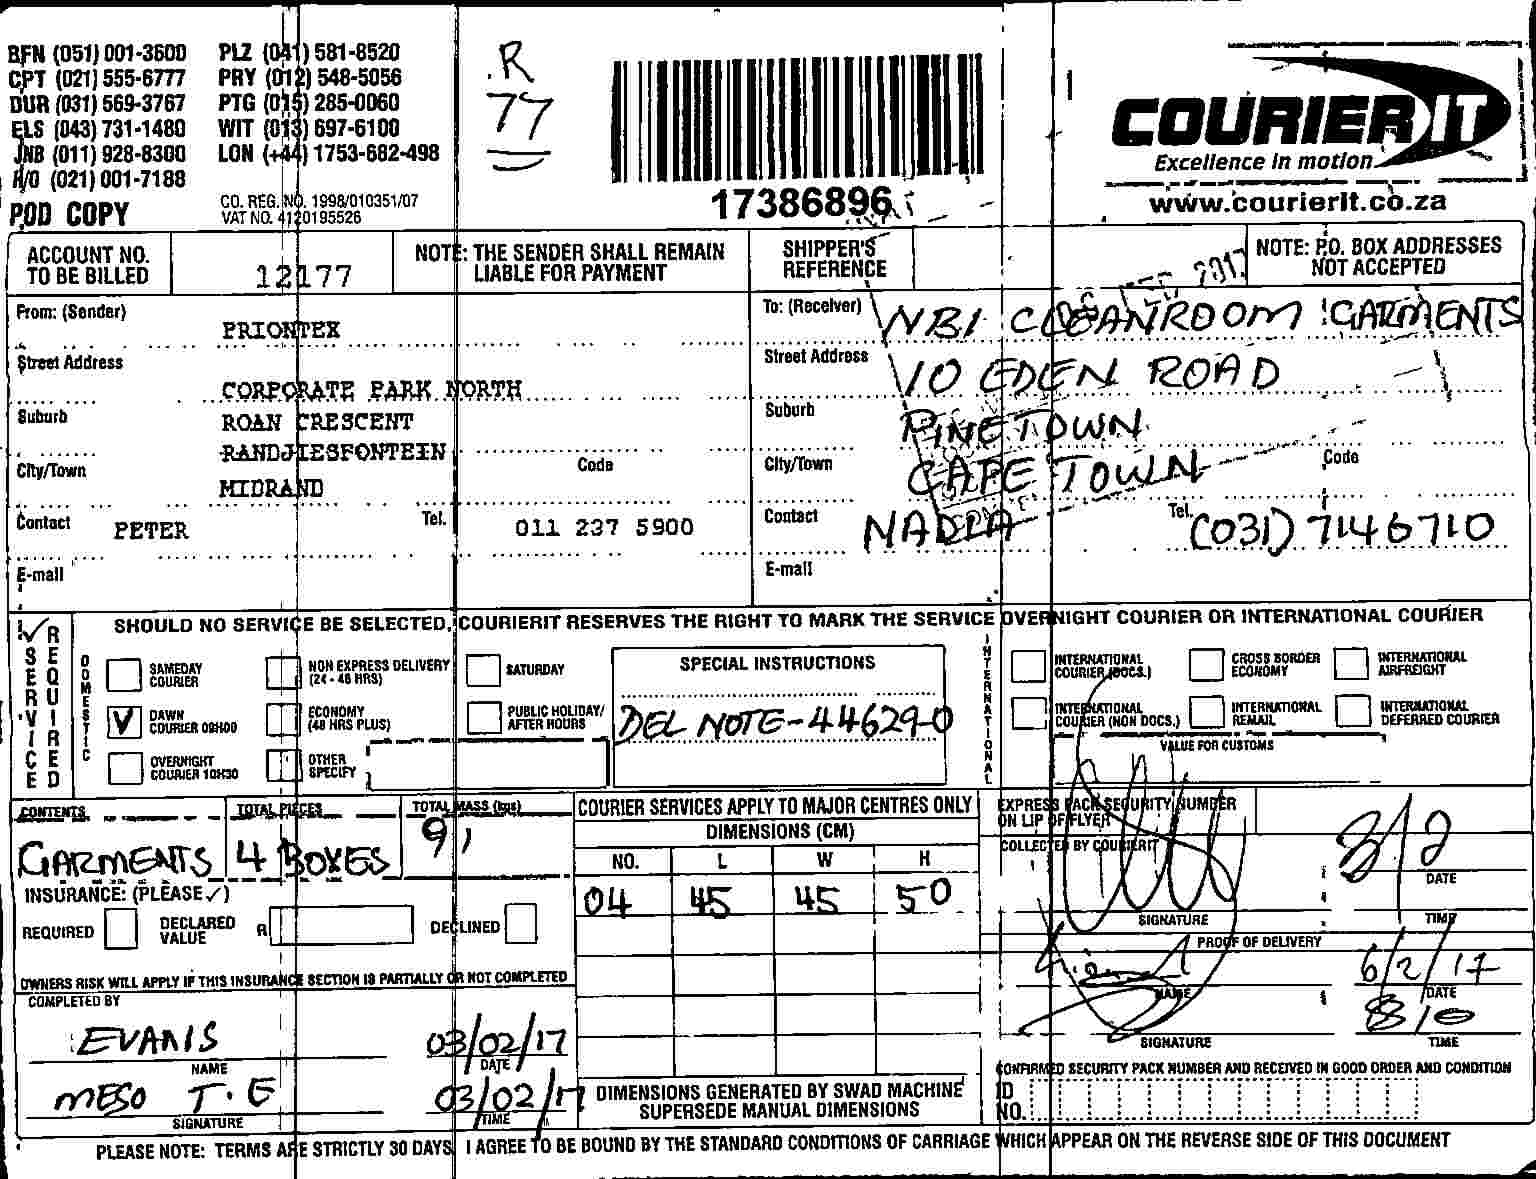 BFN (051) 001-3600 PLZ (041) 581-8520
CPT (021) 555-6777 PRY (012) 548-5056
DUR (031) 569-3767 PTG (015) 285-0060
ELS (043) 731-1480 WIT (013) 697-6100
JNB (011) 928-8300 LON (+44) 1753-682-498
H/O (021) 001-7188
POD COPY
CO. REG. NO. 1998/010351/07
VAT NO. 4120195526
R
77
17386896
COURIER IT
Excellence in motion
www.courierit.co.za
ACCOUNT NO. TO BE BILLED
12177
NOTE: THE SENDER SHALL REMAIN LIABLE FOR PAYMENT
SHIPPER'S REFERENCE
NOTE: P.O. BOX ADDRESSES NOT ACCEPTED
From: (Sender)
PRIONTEX
Street Address
CORPORATE PARK NORTH
Suburb
ROAN CRESCENT
RANDJIESFONTEIN
City/Town
MIDRAND
Code
Contact
PETER
Tel.
011 237 5900
E-mail
To: (Receiver)
NBI CLEANROOM GARMENTS
Street Address
10 EDEN ROAD
Suburb
PINETOWN
City/Town
CAPE TOWN
Code
Contact
NADIA
Tel.
(031) 7146710
E-mail
SERVICE REQUIRED
SHOULD NO SERVICE BE SELECTED, COURIERIT RESERVES THE RIGHT TO MARK THE SERVICE OVERNIGHT COURIER OR INTERNATIONAL COURIER
DOMESTIC
SAMEDAY COURIER
NON EXPRESS DELIVERY (24 - 48 HRS)
SATURDAY
DAWN COURIER 09H00
ECONOMY (48 HRS PLUS)
PUBLIC HOLIDAY/ AFTER HOURS
OVERNIGHT COURIER 10H30
OTHER SPECIFY
SPECIAL INSTRUCTIONS
DEL NOTE-446290
INTERNATIONAL
INTERNATIONAL COURIER (DOCS.)
CROSS BORDER ECONOMY
INTERNATIONAL AIRFREIGHT
INTERNATIONAL COURIER (NON DOCS.)
INTERNATIONAL REMAIL
INTERNATIONAL DEFERRED COURIER
VALUE FOR CUSTOMS
CONTENTS
GARMENTS
TOTAL PIECES
4 BOXES
TOTAL MASS (kgs)
91
INSURANCE: (PLEASE ✓)
REQUIRED
DECLARED VALUE
R
DECLINED
OWNERS RISK WILL APPLY IF THIS INSURANCE SECTION IS PARTIALLY OR NOT COMPLETED
COMPLETED BY
EVANS
NAME
03/02/17
DATE
MESO T.E
SIGNATURE
03/02/17
TIME
COURIER SERVICES APPLY TO MAJOR CENTRES ONLY
DIMENSIONS (CM)
NO. L W H
04 45 45 50
DIMENSIONS GENERATED BY SWAD MACHINE SUPERSEDE MANUAL DIMENSIONS
EXPRESS PACK SECURITY NUMBER ON LIP OF FLYER
COLLECTED BY COURIERIT
SIGNATURE
3/2
DATE
TIME
PROOF OF DELIVERY
NAME
6/2/17
DATE
SIGNATURE
8/10
TIME
CONFIRMED SECURITY PACK NUMBER AND RECEIVED IN GOOD ORDER AND CONDITION
ID NO.
PLEASE NOTE: TERMS ARE STRICTLY 30 DAYS. I AGREE TO BE BOUND BY THE STANDARD CONDITIONS OF CARRIAGE WHICH APPEAR ON THE REVERSE SIDE OF THIS DOCUMENT